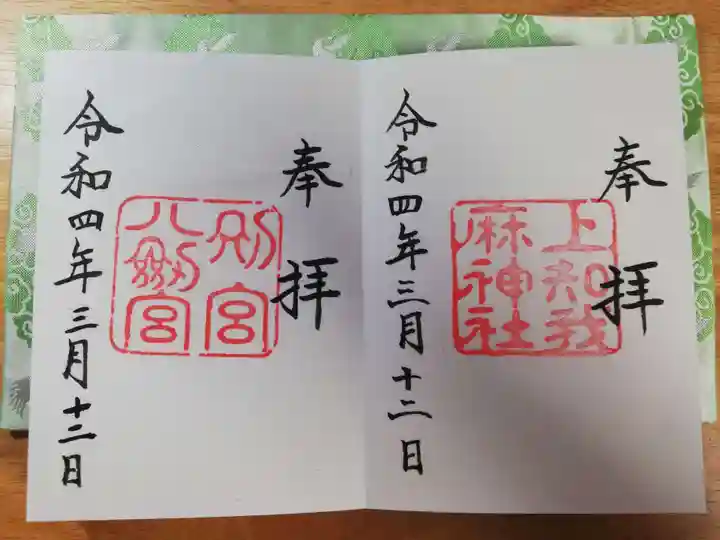 奉拝
上知我
麻神社
令和四年三月十二日
奉拝
別宮
八剣宮
令和四年三月十二日